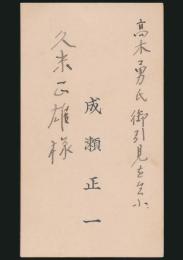 高木勇氏御引見を乞ふ
成瀬正一
久米正雄様